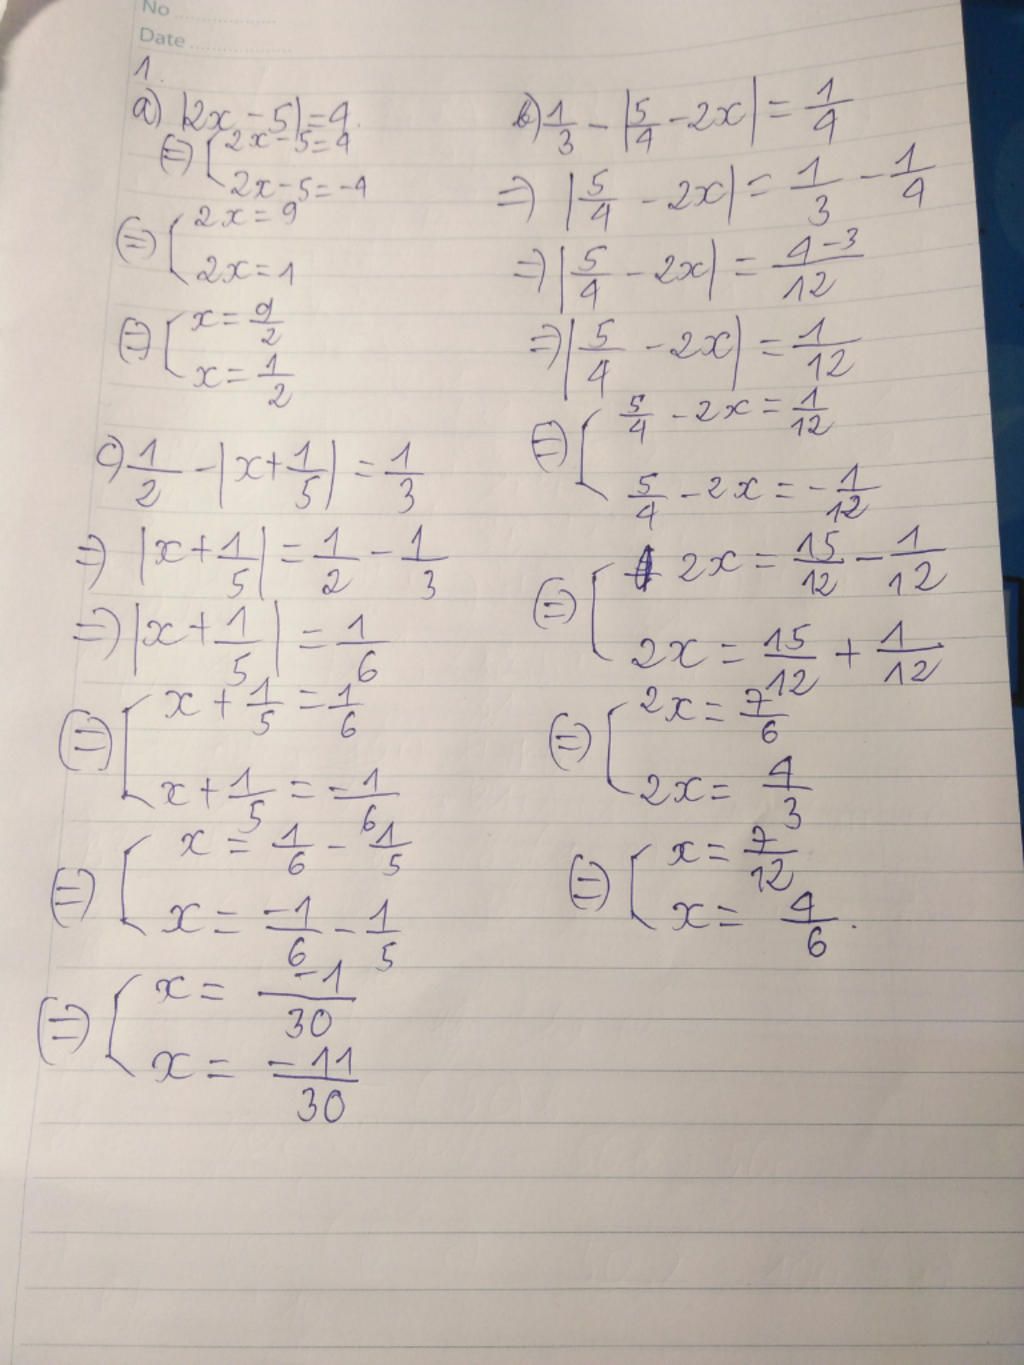 No
Date
1.
a) |2x - 5| = 4.
(=) [ 2x - 5 = 4
2x - 5 = -4
(=) [ 2x = 9
2x = 1
(=) [ x = 9/2
x = 1/2
c) 1/2 - |x + 1/5| = 1/3
=) |x + 1/5| = 1/2 - 1/3
=) |x + 1/5| = 1/6
(=) [ x + 1/5 = 1/6
x + 1/5 = -1/6
(=) [ x = 1/6 - 1/5
x = -1/6 - 1/5
(=) [ x = -1/30
x = -11/30
b) 1/3 - |5/4 - 2x| = 1/4
=) |5/4 - 2x| = 1/3 - 1/4
=) |5/4 - 2x| = 4-3/12
=) |5/4 - 2x| = 1/12
(=) [ 5/4 - 2x = 1/12
5/4 - 2x = -1/12
(=) [ 2x = 15/12 - 1/12
2x = 15/12 + 1/12
(=) [ 2x = 7/6
2x = 4/3
(=) [ x = 7/12
x = 4/6.